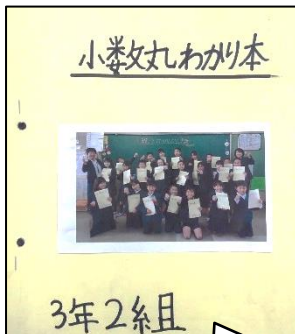 小数丸わかり本
3年2組